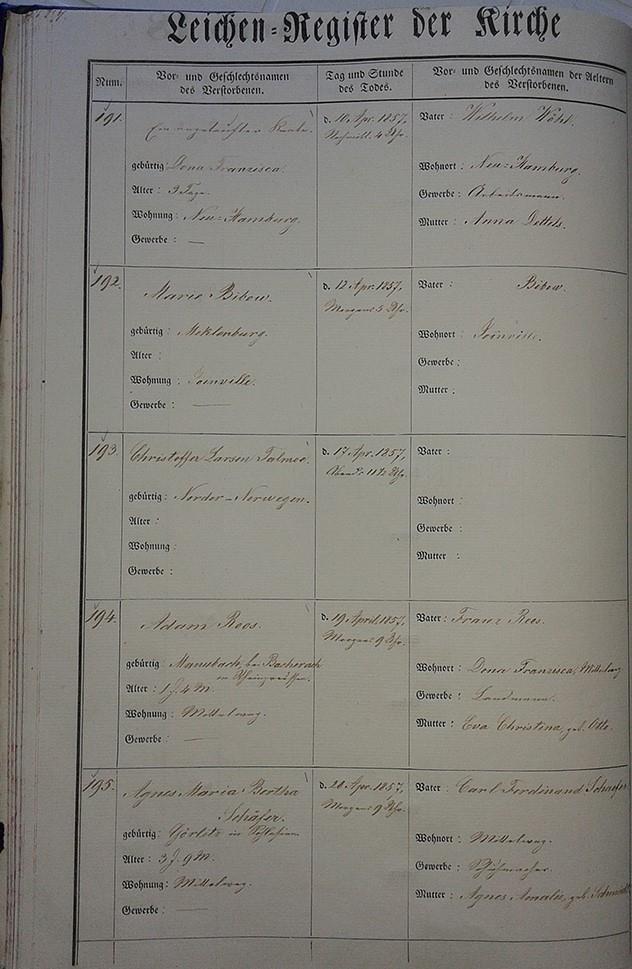 Leichen-Register der Kirche
Num.
Vor- und Geschlechtsnamen
des Verstorbenen.
Tag und Stunde
des Todes.
Vor- und Geschlechtsnamen der Aeltern
des Verstorbenen.
191.
Ein ungetaufter Knabe.
gebürtig Dona Franzisca.
Alter : 3 Tage.
Wohnung : Neu-Hamburg.
Gewerbe : —
d. 10 Apr. 1857,
Nachmitt. 4 Uhr.
Vater : Wilhelm Wöhl.
Wohnort : Neu-Hamburg.
Gewerbe : Arbeitsmann.
Mutter : Anna Dettels.
192.
Marie Bibow.
gebürtig : Meklenburg.
Alter :
Wohnung : Joinville.
Gewerbe : —
d. 12 Apr. 1857.
Morgens 5 Uhr.
Vater : Bibow.
Wohnort : Joinville.
Gewerbe :
Mutter :
193.
Christoffer Larsen
gebürtig : Norder-Norwegen.
Alter :
Wohnung :
Gewerbe :
d. 17 Apr. 1857,
Abends 11½ Uhr.
Vater :
Wohnort :
Gewerbe :
Mutter :
194.
Adam Roos.
gebürtig : Manubach, bei Bacharach
in Rheinpreußen.
Alter : 1 J. 4 M.
Wohnung : Mittelweg.
Gewerbe : —
d. 19 April 1857,
Morgens 9 Uhr.
Vater : Franz Roos.
Wohnort : Dona Franzisca, Mittelweg
Gewerbe : Landmann.
Mutter : Eva Christina, geb. Otto.
195.
Agnes Maria Bertha
Schäfer.
gebürtig : Görlitz in Schlesien
Alter : 3 J. 9 M.
Wohnung : Mittelweg.
Gewerbe : —
d. 20 Apr. 1857,
Morgens 9 Uhr.
Vater : Carl Ferdinand Schaefer
Wohnort : Mittelweg.
Gewerbe : Schuhmacher.
Mutter : Agnes Amalie, geb. Schmidt